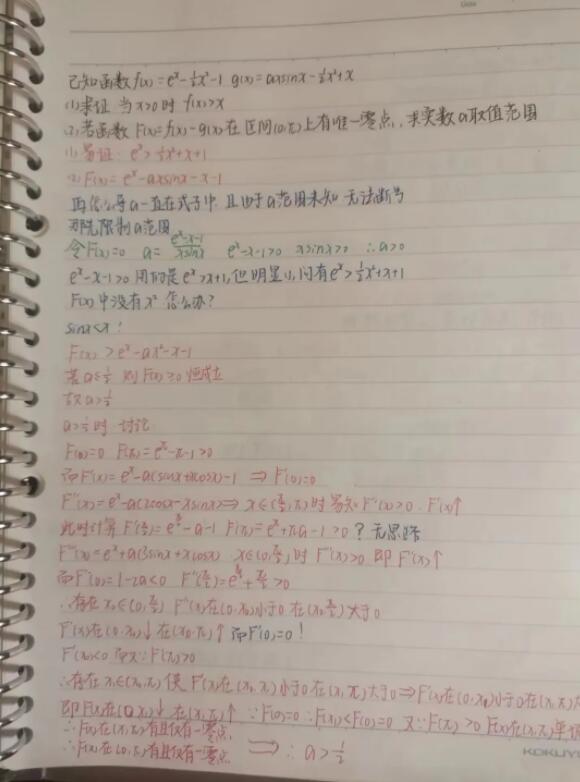 已知函数 f(x)=e^x-½x²-1 g(x)=axsinx-½x²+x
(1)求证 当x>0时 f(x)>x
(2)若函数 F(x)=f(x)-g(x)在区间(0,π)上有唯一零点,求实数a取值范围
(1)易证: e^x>½x²+x+1
(2)F(x)=e^x-axsinx-x-1
再怎么导a一直在式子中 且由于a范围未知 无法断号
那先限制a范围
令F(x)=0 a=(e^x-x-1)/(xsinx) e^x-x-1>0 xsinx>0 ∴a>0
e^x-x-1>0用的是e^x>x+1,但明显(1)问有e^x>½x²+x+1
F(x)中没有x²怎么办?
sinx<x!
F(x)>e^x-ax²-x-1
若a≤½ 则F(x)≥0恒成立
故a>½
a>½时 讨论
F(0)=0 F(π)=e^π-π-1>0
而F'(x)=e^x-a(sinx+xcosx)-1 ⇒F'(0)=0
F''(x)=e^x-a(2cosx-xsinx)⇒x∈(π/2,π)时易知F''(x)>0 . F'(x)↑
此时计算F'(π/2)=e^(π/2)-a-1 F'(π)=e^π+πa-1>0?无思路
F'''(x)=e^x+a(3sinx+xcosx) x∈(0,π/2)时F'''(x)>0 即F''(x)↑
而F''(0)=1-2a<0 F''(π/2)=e^(π/2)+π/2>0
∴存在x₀∈(0,π/2) F''(x)在(0,x₀)小于0 在(x₀,π/2)大于0
F'(x)在(0,x₀)↓在(x₀,π)↑ 而F'(0)=0!
F'(x₀)<0 而又∵F'(π)>0
∴存在x₁∈(x₀,π)使 F'(x)在(x₀,x₁)小于0在(x₁,π)大于0⇒F'(x)在(0,x₁)小于0在(x₁,π)大
即F(x)在(0,x₁)↓ 在(x₁,π)↑ ∵F(0)=0∴F(x₁)<F(0)=0 又∵F(π)>0 F(x)在(x₁,π)单调
∴F(x)在(x₁,π)有且仅有一零点
∴F(x)在(0,π)有且仅有一零点 ⇒ ∴a>½
KOKUYO